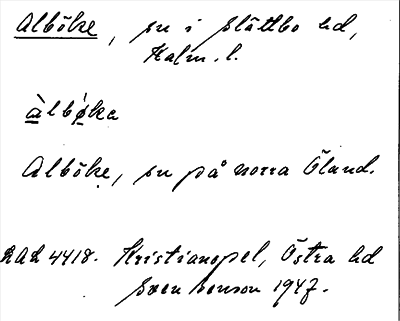 Alböke, sn i Slättbo hd,
Kalm. l.
àlbö́ka
Alböke, sn på norra Öland.
RAÄ 4418. Kristianopel, Östra hd
Sven Benson 1947.